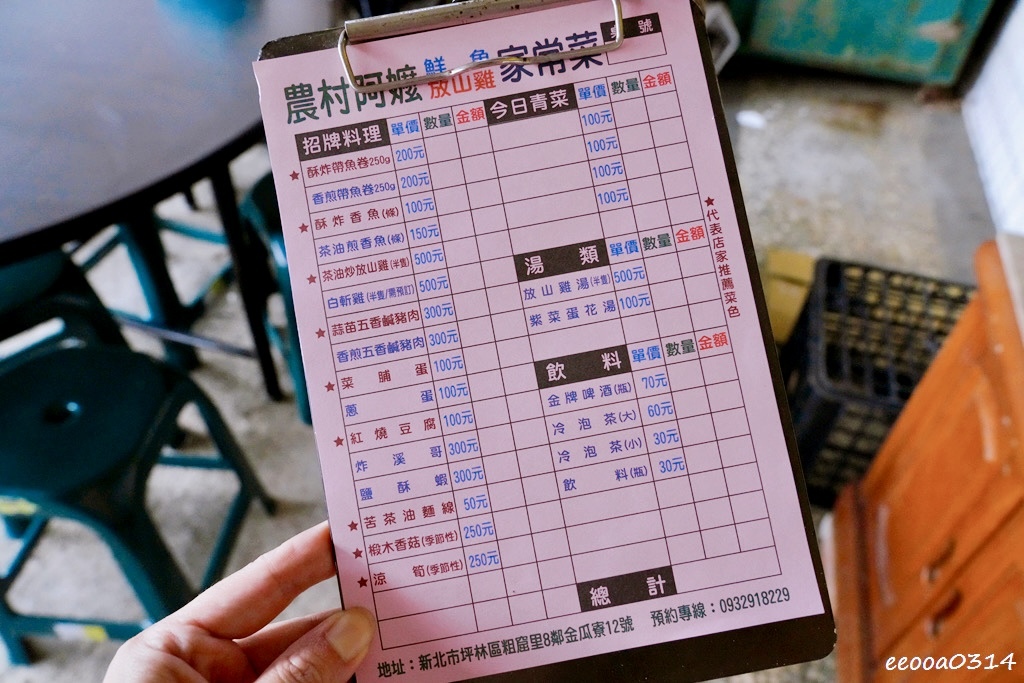 桌號
農村阿嬤 鮮魚 放山雞 家常菜
招牌料理 單價 數量 金額
★ 酥炸帶魚卷250g 200元
香煎帶魚卷250g 200元
★ 酥炸香魚(條) 100元
茶油煎香魚(條) 150元
★ 茶油炒放山雞(半隻) 500元
白斬雞(半隻/需預訂) 500元
★ 蒜苗五香鹹豬肉 300元
香煎五香鹹豬肉 300元
★ 菜脯蛋 100元
蔥蛋 100元
★ 紅燒豆腐 100元
炸溪哥 300元
鹽酥蝦 300元
★ 苦茶油麵線 50元
★ 椴木香菇(季節性) 250元
★ 涼筍(季節性) 250元
今日青菜 單價 數量 金額
100元
100元
100元
100元
湯類 單價 數量 金額
放山雞湯(半隻) 500元
紫菜蛋花湯 100元
飲料 單價 數量 金額
金牌啤酒(瓶) 70元
冷泡茶(大) 60元
冷泡茶(小) 30元
飲料(瓶) 30元
總計
★代表店家推薦菜色
地址：新北市坪林區粗窟里8鄰金瓜寮12號 預約專線：0932918229
eeooa0314